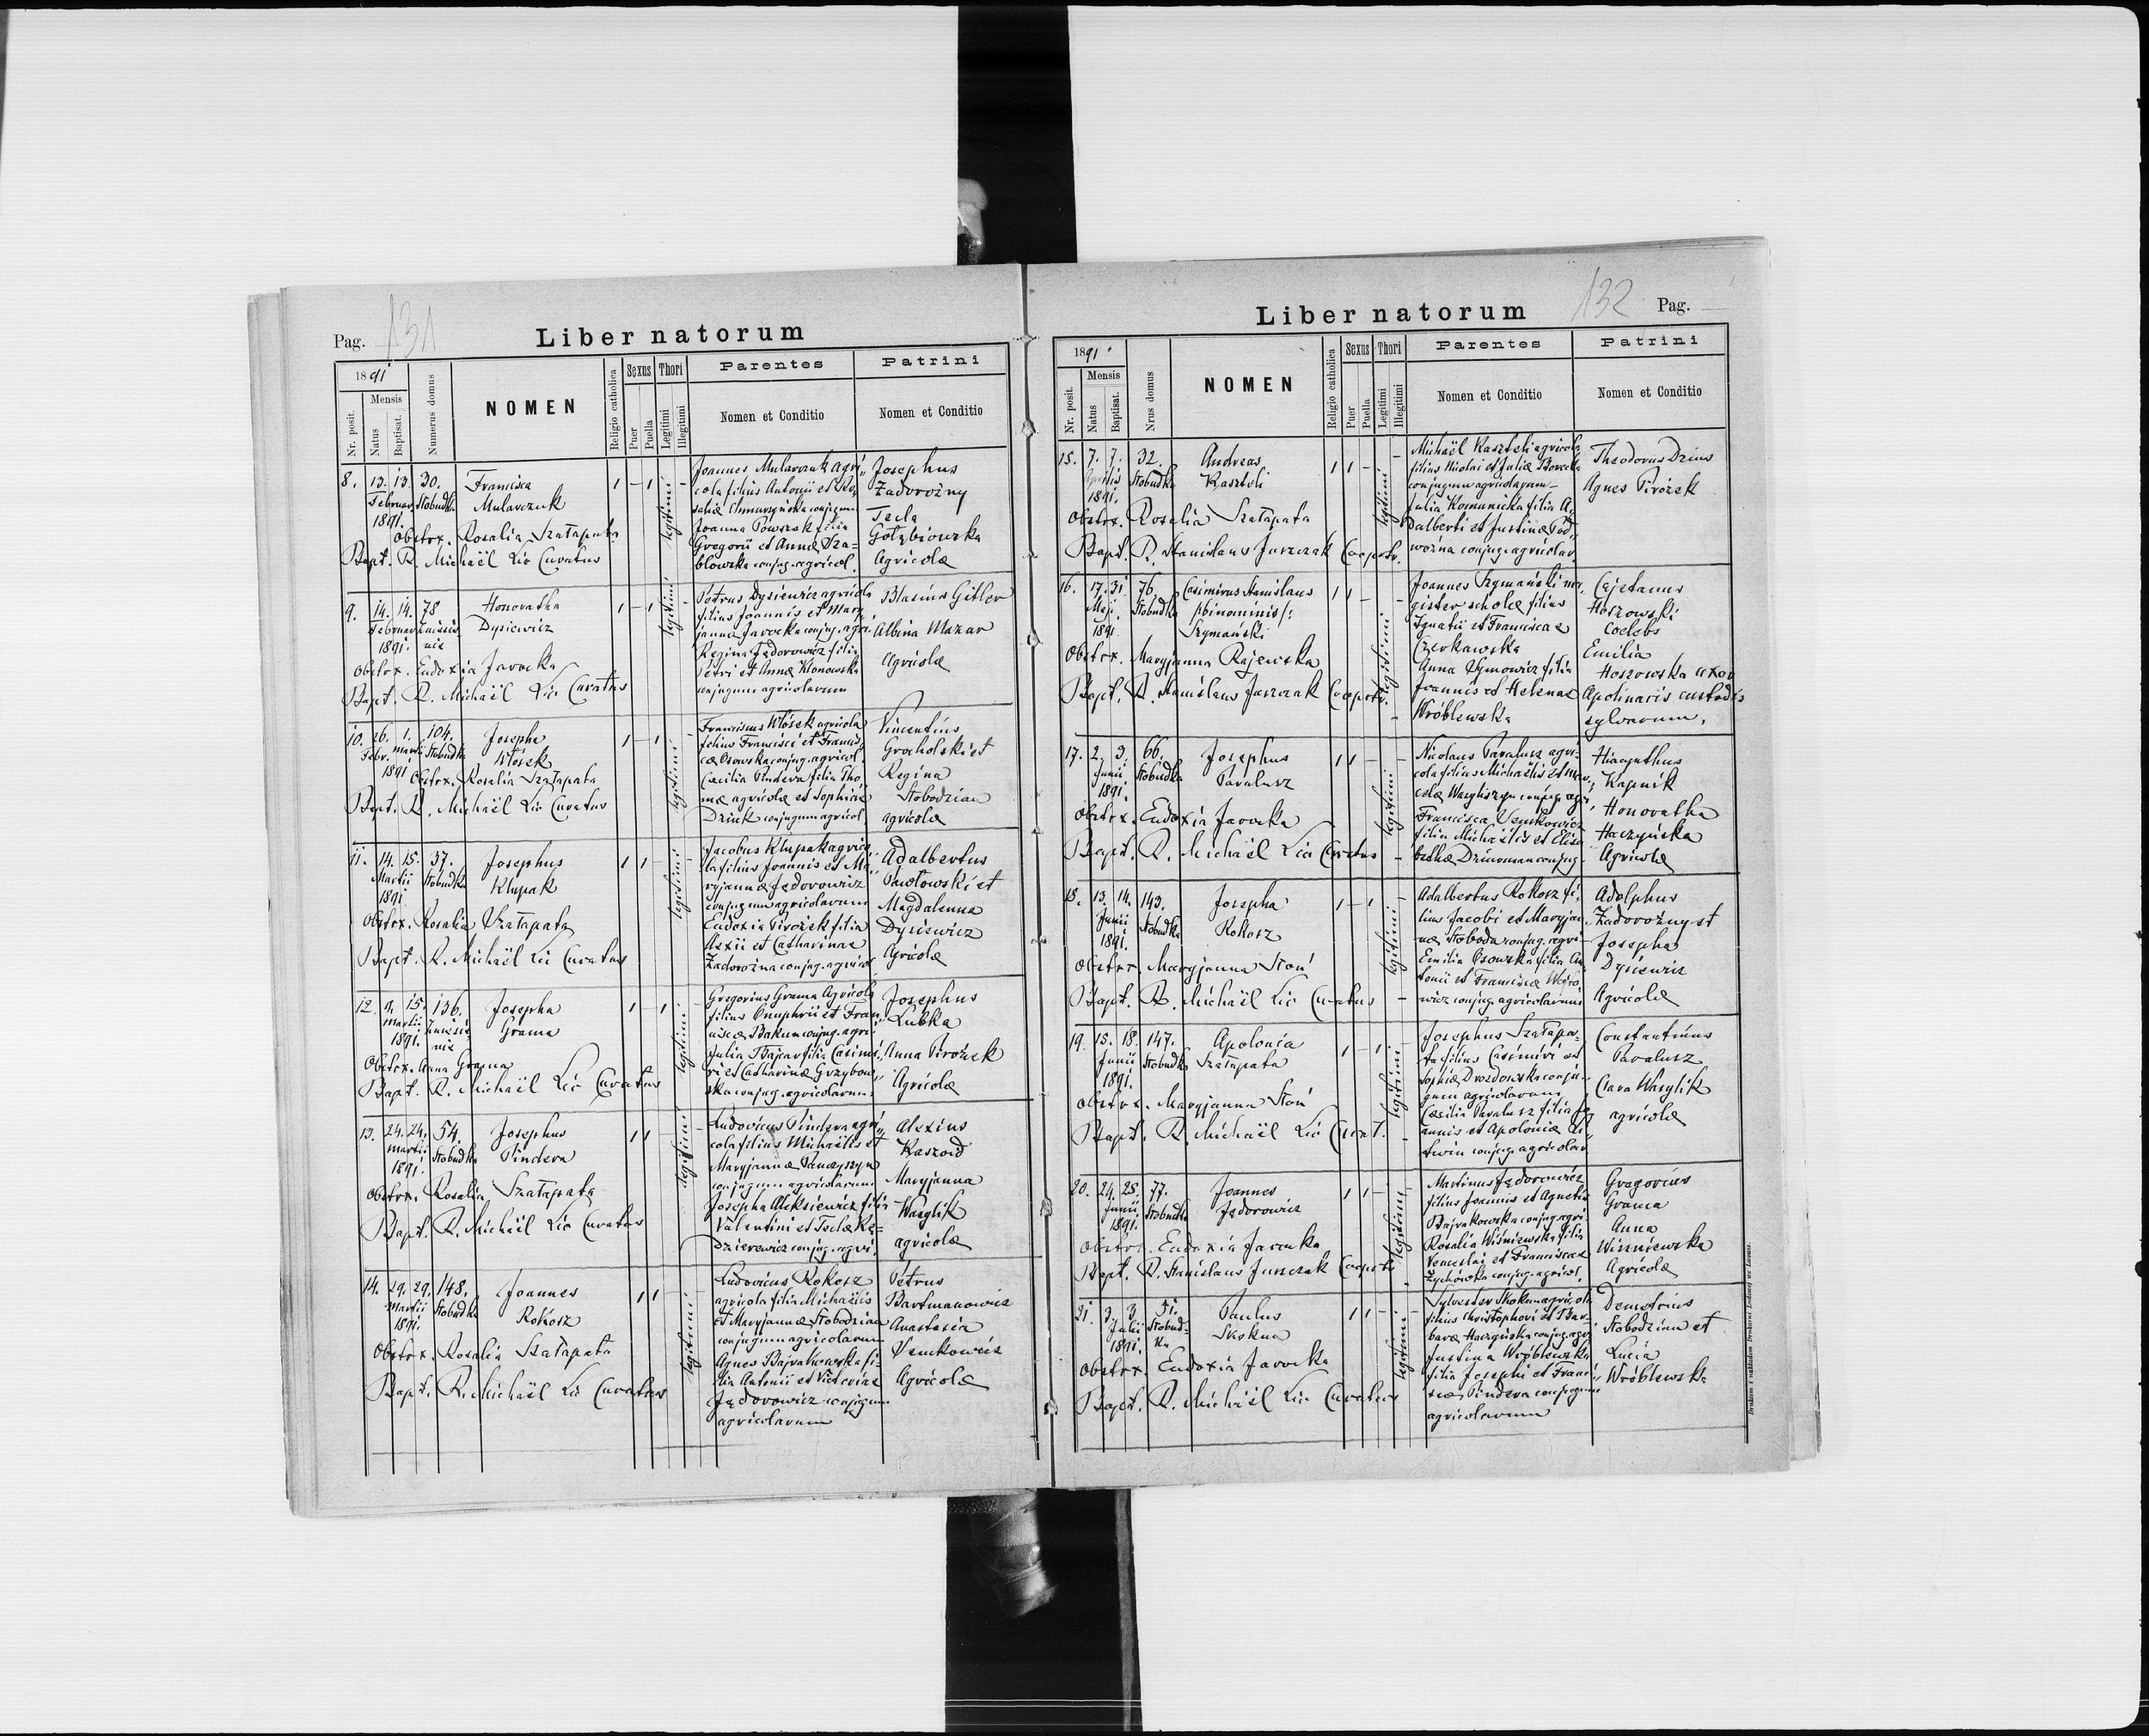 Pag. 131
Liber natorum
1891
Nr. posit.
Mensis
Natus
Baptisat.
Numerus domus
NOMEN
Religio catholica
Sexus
Puer
Puella
Thori
Legitimi
Illegitimi
Parentes
Nomen et Conditio
Patrini
Nomen et Conditio
8. 13. 13. 30. Francisca
Februar. Słobudka Mularczuk
1891.
Obstox. Rosalia Szałapata
Bapt. R. Michaël Lic Curatus
legitimi
Joannes Mularczuk agri
cola filius Antonii et Ro
salie conjugum
Joanna filia
Gregorii et Annæ Sza=
blowska conjug. agricol.
Josephus
Zadorożny
Tecla
Gołębiowska
Agricolæ
9. 14. 14. 78 Honoratha
Februar. Dysiewicz
1891.
Obstox. Eudoxia Jarocka
Bapt. R. Michaël Lic Curatus
legitimi
Petrus Dysiewicz agricola
filius Joannis et Mary
jannæ Jarocka conjug. agri
Regina Fedorowicz filia
Petri et Annæ Klonowska
conjugum agricolarum
Blasius Gitler
Albina Mazar
Agricolæ
10. 26. 1. 104. Josepha
Febr. Martii Słobudka Włósek
1891
Obstox. Rosalia Szałapata
Bapt. R. Michaël Lic Curatus
legitimi
Franciscus Włósek agricola
filius Francisci et Francis
cæ Osowska conjug. agricol.
Cæcilia Pindera filia Tho
mæ agricolæ et Sophiæ
Dziuk conjugum agricol
Vincentius
Grocholski et
Regina
Słobodzian
agricolæ
11. 14. 15. 37. Josephus
Martii Słobudka Klupak
1891
Obstox. Rosalia Szałapata
Bapt. R. Michaël Lic Curatus
legitimi
Jacobus Klupak agrico
la filius Joannis et Ma
ryjannæ Fedorowicz
conjugum agricolarum
Eudoxia Pirożek filia
Alexii et Catharinae
Zadorożna conjug. agricol
Adalbertus
Pawłowski et
Magdalenna
Dysiewicz
Agricolæ
12. 9. 15. 136. Josepha
Martii Grama
1891.
Obstox. Anna Grama
Bapt. R. Michaël Lic Curatus
legitimi
Gregorius Grama Agricola
filius Onuphrii et Fran
ciscæ Bakum conjug. agri
Julia filia Casimi
ri et Catharinæ Grzybow
ska conjug. agricolarum
Josephus
Lubka
Anna Pirożek
Agricolæ
13. 24. 24. 54. Josephus
Martii Słobudka Pindera
1891.
Obstox. Rosalia Szałapata
Bapt. R. Michaël Lic Curatus
legitimi
Ludovicus Pindera agri
cola filius Michaëlis et
Maryjannæ Panczyszyn
conjugum agricolarum
Josepha Aleksiewicz filia
Valentini et Teclæ Kę=
dzierewicz conjug. agri.
Alexius
Maryjanna
Wasylik
agricolæ
14. 29. 29. 148. Joannes
Martii Słobudka Rokosz
1891.
Obstox. Rosalia Szałapata
Bapt. R. Michaël Lic Curatus
legitimi
Ludovicus Rokosz
agricola filius Michaëlis
et Maryjannæ Słobodzian
conjugum agricolarum
Agnes Bajrakowska fi
lia Antonii et Victoriae
Fedorowicz conjugum
agricolarum
Petrus
Bartmanowicz
Anastasia
Senkowicz
Agricolæ
Liber natorum
132 Pag.
1891
Nr. posit.
Mensis
Natus
Baptisat.
Nrus domus
NOMEN
Religio catholica
Sexus
Puer
Puella
Thori
Legitimi
Illegitimi
Parentes
Nomen et Conditio
Patrini
Nomen et Conditio
15. 7. 7. 32. Andreas
Aprilis Słobudka Kaszteli
1891.
Obstox. Rosalia Szałapata
Bapt. R. Stanislaus Juszczak Cooprtr.
legitimi
Michaël Kaszteli agricola
filius Nicolai et Juliæ
conjugum agricolarum
Julia Komunicka filia A
dalberti et Justinæ Pod
worna conjug. agricolar
Theodorus Dzius
Agnes Pirożek
16. 17. 31. 76. Casimirus Stanislaus
Maji Słobudka /:binominis/:
1891. Szymański
Obstox. Maryjanna Rajewska
Bapt. R. Stanislaus Juszczak Cooprtr.
legitimi
Joannes Szymański ma
gister scholæ filius
Ignatii et Franciscae
Czerkawska
Anna Szymowicz filia
Joannis et Helenae
Wróblewska
Cajetanus
Hoszowski
Coelebs
Emilia
Hoszowska uxor
Apolinaris custodis
sylvarum.
17. 2. 3. 66. Josephus
Junii Słobudka Paralusz
1891.
Obstox. Eudoxia Jarocka
Bapt. R. Michaël Lic Curatus
legitimi
Nicolaus Paralusz agri
cola filius Michaëlis et Mar
celæ Wasyliszyn conjug. agri
Francisca Senkowicz
filia Michaëlis et Elisa
bethæ Dziuvman conjug.
Hiacynthus
Kapnik
Honoratha
Haczyńska
Agricolæ
18. 13. 14. 143. Josepha
Junii Słobudka Rokosz
1891.
Obstox. Maryjanna Stoń
Bapt. R. Michaël Lic Curatus
legitimi
Adalbertus Rokosz fi
lius Jacobi et Maryjan
næ Słoboda conjug. agri
Emilia Osowska filia An
tonii et Franciscæ
conjug. agricolarum
Adolphus
Zadorożny et
Josepha
Dysiewicz
Agricolæ
19. 15. 18. 147. Apolonia
Junii Słobudka Szałapata
1891.
Obstox. Maryjanna Stoń
Bapt. R. Michaël Lic Curat.
legitimi
Josephus Szałapa=
ta filius Casimiri et
Sophiæ Drozdowska conju
gum agricolarum
Cæcilia Paralusz filia Jo
annis et Apoloniæ
conjug. agricolar
Constantinus
Paralusz
Clara Wasylik
agricolæ
20. 24. 25. 77. Joannes
Junii Słobudka Fedorowicz
1891.
Obstox. Eudoxia Jarocka
Bapt. R. Stanislaus Juszczak Cooprtr
legitimi
Martinus Fedorowicz
filius Joannis et Agnetis
Bajrakowska conjug. agri.
Rosalia Wiśniewska filia
Venceslai et Franciscae
Zychówska conjug. agricol.
Gregorius
Grama
Anna
Wiszniewska
Agricolæ
21. 3. 3. 51. Paulus
Julii Słobud- Skokun
1891. ka
Obstox. Eudoxia Jarocka
Bapt. R. Michaël Lic Curatus
legitimi
Sylvester Skokun agricola
filius Christophori et Bar=
baræ Haczyńska conjug. agr.
Justina Wróblewska
filia Josephi et Franci
scæ Pindera conjugum
agricolarum
Demetrius
Słobodzian et
Lucia
Wróblewska